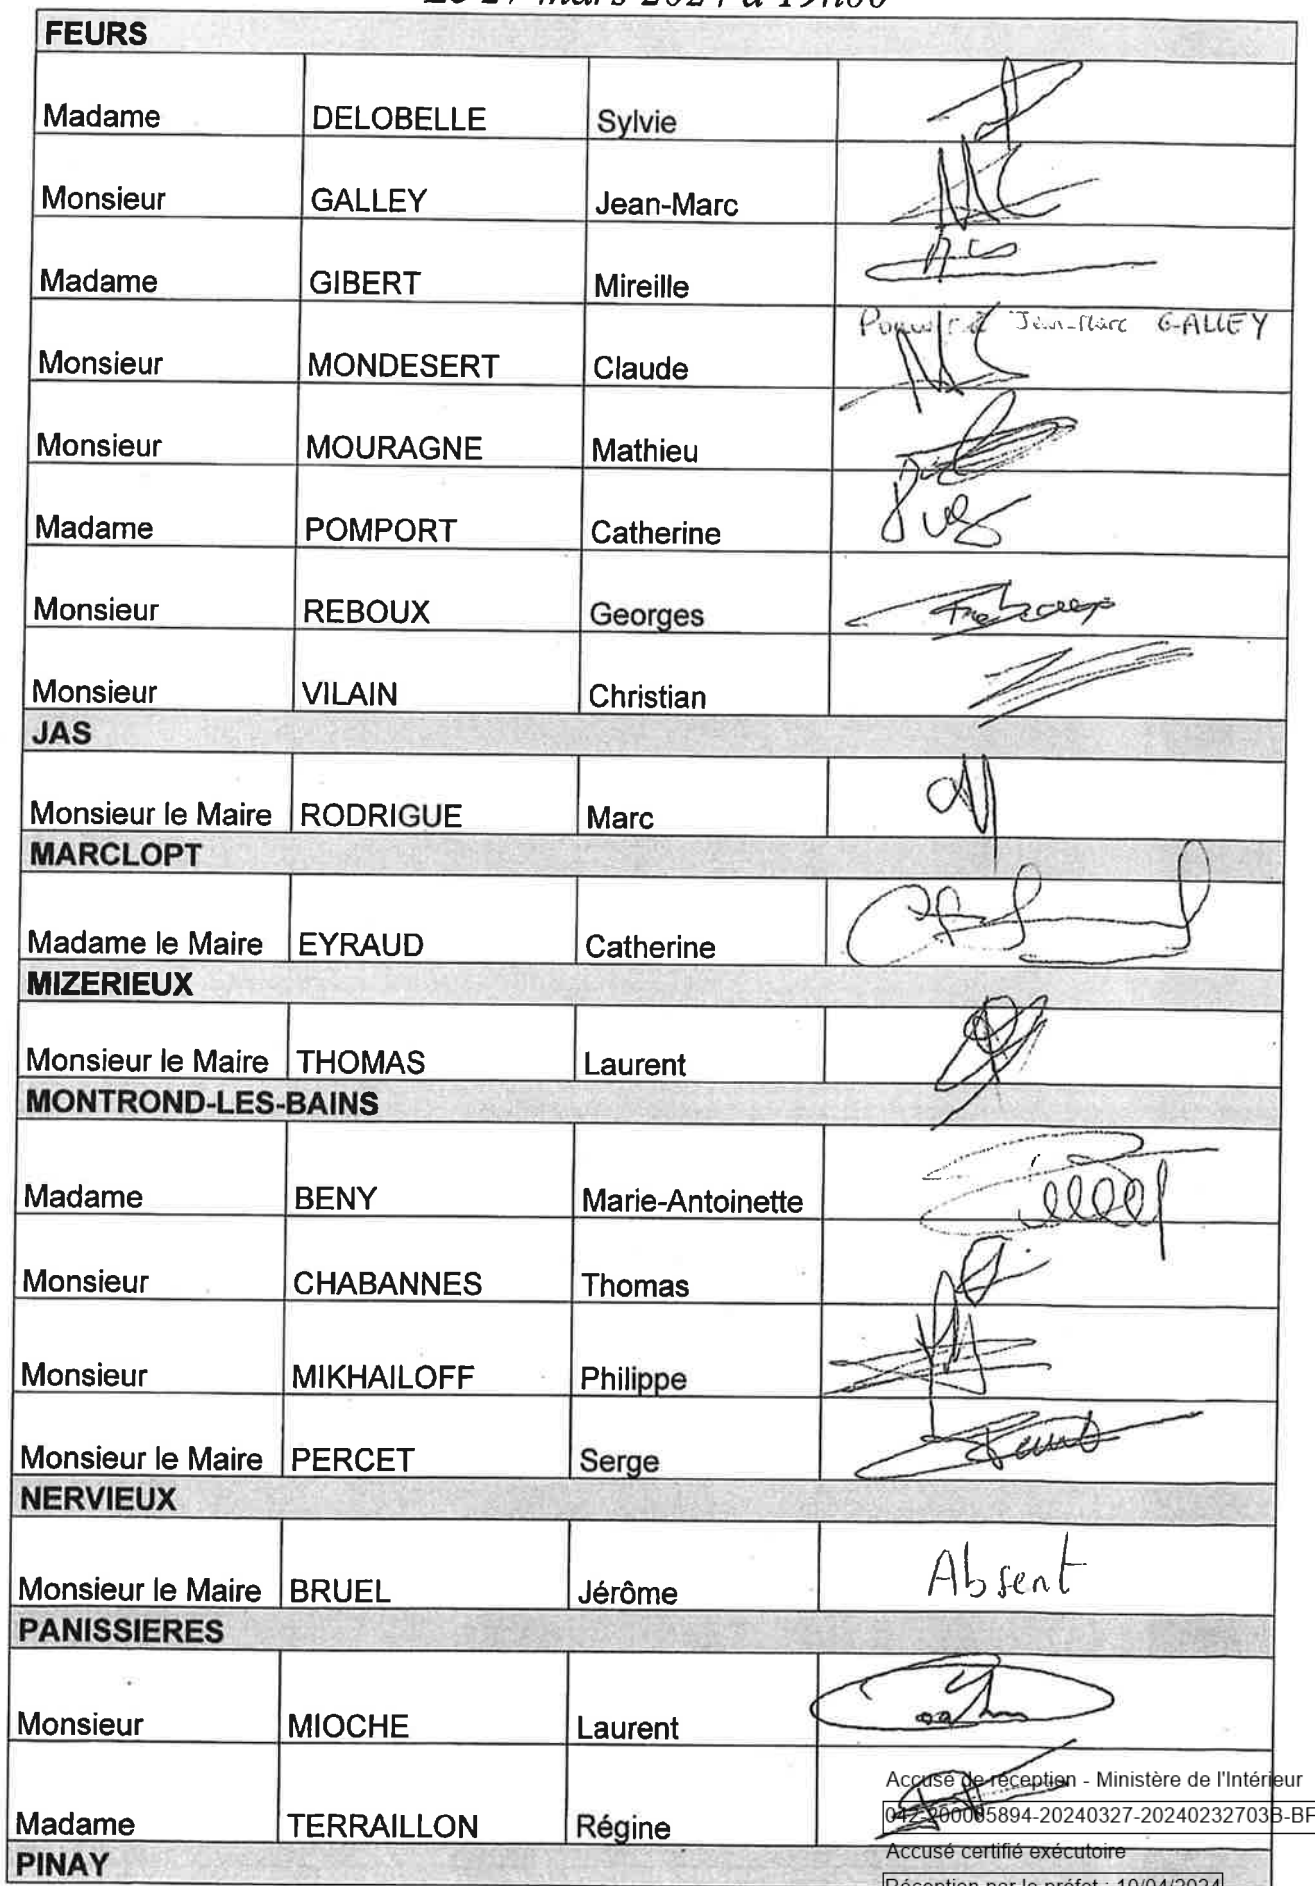 Le 27 mars 2024 à 19h00
FEURS
Madame DELOBELLE Sylvie
Monsieur GALLEY Jean-Marc
Madame GIBERT Mireille
Pouvoir à Jean-Marc GALLEY
Monsieur MONDESERT Claude
Monsieur MOURAGNE Mathieu
Madame POMPORT Catherine
Monsieur REBOUX Georges
Monsieur VILAIN Christian
JAS
Monsieur le Maire RODRIGUE Marc
MARCLOPT
Madame le Maire EYRAUD Catherine
MIZERIEUX
Monsieur le Maire THOMAS Laurent
MONTROND-LES-BAINS
Madame BENY Marie-Antoinette
Monsieur CHABANNES Thomas
Monsieur MIKHAILOFF Philippe
Monsieur le Maire PERCET Serge
NERVIEUX
Monsieur le Maire BRUEL Jérôme Absent
PANISSIERES
Monsieur MIOCHE Laurent
Madame TERRAILLON Régine
PINAY
Accusé de réception - Ministère de l'Intérieur
042-200065894-20240327-20240232703B-BF
Accusé certifié exécutoire
Réception par le préfet : 10/04/2024